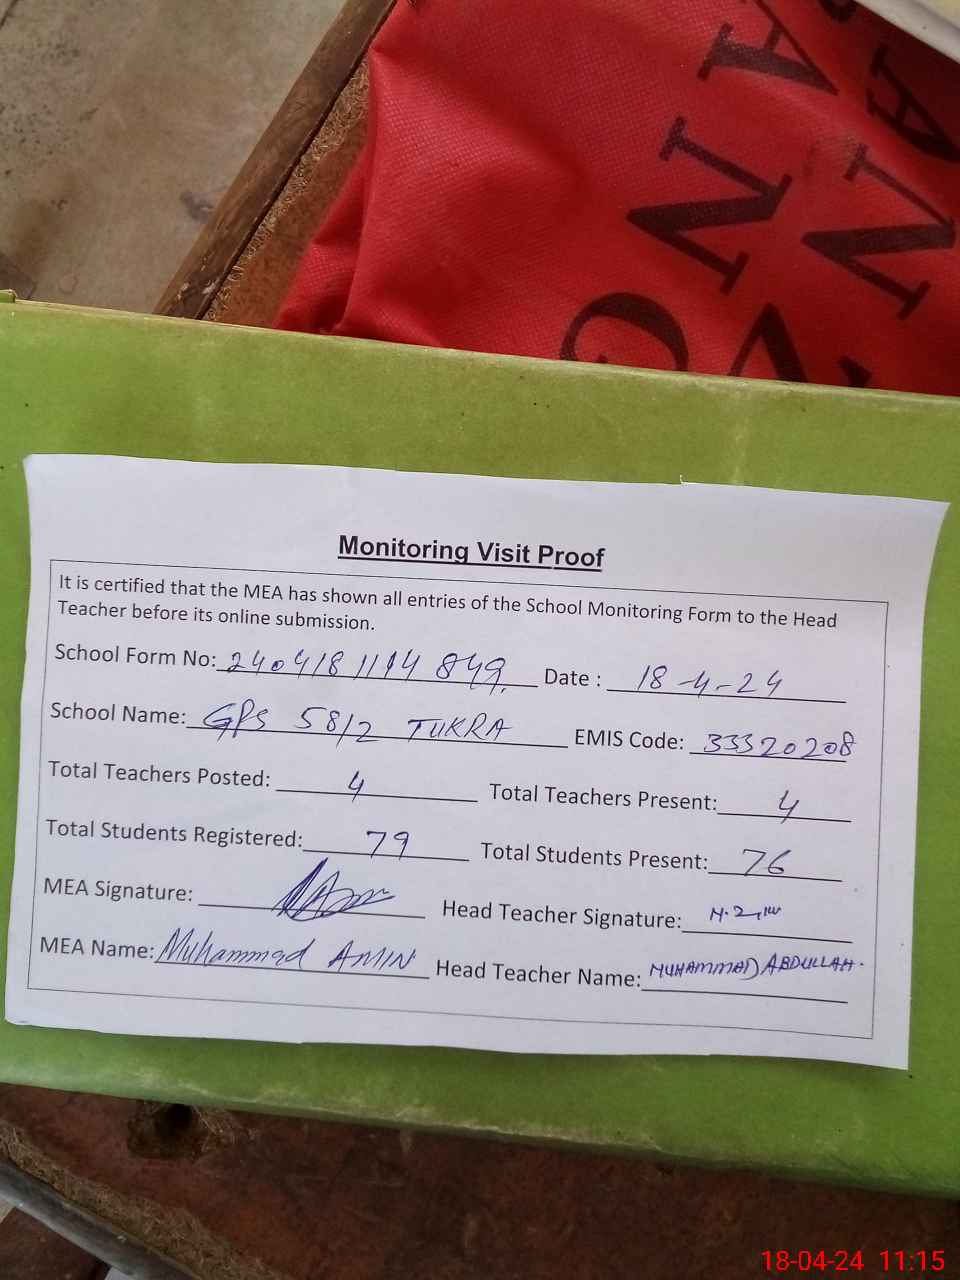 Monitoring Visit Proof
It is certified that the MEA has shown all entries of the School Monitoring Form to the Head
Teacher before its online submission.
School Form No: 2404181114849 Date : 18-4-24
School Name: GPS 58/2 TUKRA EMIS Code: 33320208
Total Teachers Posted: 4 Total Teachers Present: 4
Total Students Registered: 79 Total Students Present: 76
MEA Signature: Head Teacher Signature:
MEA Name: Muhammad AMIN Head Teacher Name: MUHAMMAD ABDULLAH.
18-04-24 11:15